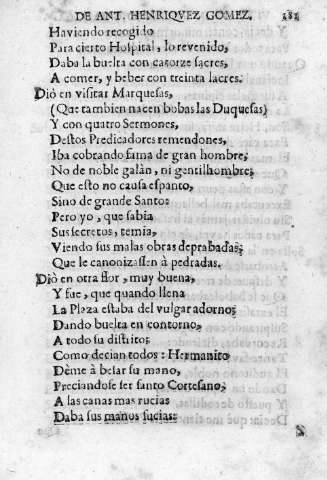 DE ANT. HENRIQVEZ GOMEZ. 181
Haviendo recogido
Para cierto Hospital, lo revenido,
Daba la buelta con catorze sacres,
A comer, y beber con treinta lacres.
Diò en visitar Marquesas,
(Que tambien nacen bobas las Duquesas)
Y con quatro Sermones,
Destos Predicadores remendones,
Iba cobrando fama de gran hombre;
No de noble galàn, ni gentilhombre;
Que esto no causa espanto,
Sino de grande Santo:
Pero yo, que sabia
Sus secretos, temia,
Viendo sus malas obras deprabadas;
Que le canonizassen à pedradas.
Diò en otra flor, muy buena,
Y fue, que quando llena
La Plaza estaba del vulgar adorno;
Dando buelta en contorno,
A todo su distito;
Como decian todos: Hermanito
Dème à besar su mano,
Preciandose ser santo Cortesano;
A las canas mas rucias
Daba sus manos sucias: